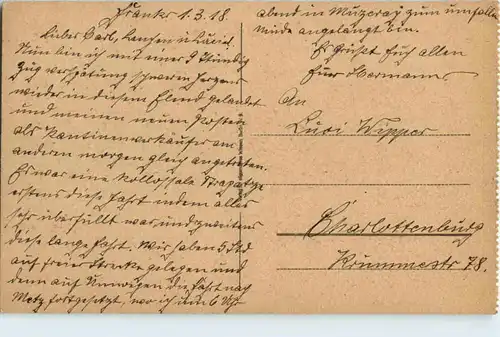 Frankr 1.3.18.
Lieber Carl, Lenchen u Lucie!
Nun bin ich mit einer 9 Stündig
Zug verspätung schweren Herzens
wieder in diesem Elend gelandet
und meinen neuen Posten
als Kantinenverkäufer am
anderen morgen gleich angetreten.
Es war eine kollossale Strapatze
erstens diese Fahrt indem alles
sehr überfüllt war und zweitens
diese lange Fahrt. Wir haben 5 Std
auf freier Strecke gelegen und
dann auf Umwegen die Fahrt nach
Metz fortgesetzt, wo ich um 6 Uhr
abend in zum umfallen
müde angelangt bin.
Es grüßt Euch allen
Euer Hermann
An
Luci Wipper
Charlottenburg
Krummestr 78.